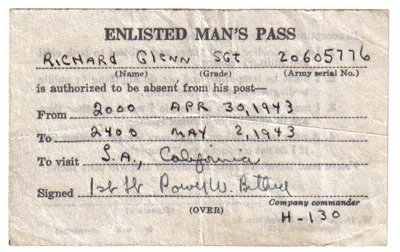 ENLISTED MAN'S PASS
RICHARD GLENN SGT 20605776
(Name) (Grade) (Army serial No.)
is authorized to be absent from his post—
From 2000 APR 30, 1943
To 2400 MAY 2, 1943
To visit L.A., California
Signed 1st Lt W.
Company commander
(OVER) H-130